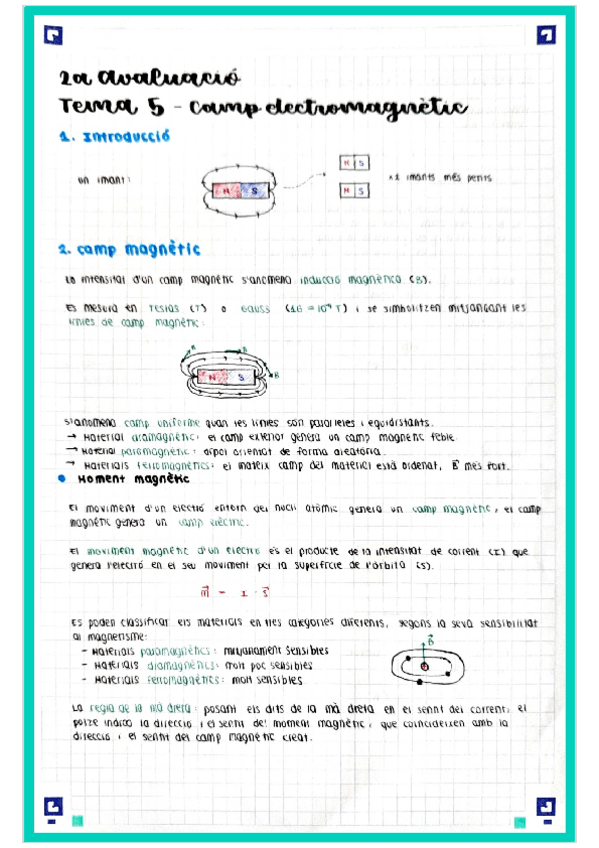 2a Avaluació
Tema 5 - Camp electromagnètic
1. Introducció
un imant:
N S
N S
N S
x2 imants més petits
2. Camp magnètic
La intensitat d'un camp magnètic s'anomena inducció magnètica (B).
Es mesura en Teslas (T) o Gauss (1G = 10⁻⁴ T) i se simbolitzen mitjançant les
línies de camp magnètic:
B
B
N S
B
S'anomena camp uniforme quan les línies són paral·leles i equidistants.
→ Material diamagnètic: el camp exterior genera un camp magnètic feble.
→ Material paramagnètic: dipol orientat de forma aleatòria.
→ Materials ferromagnètics: el mateix camp del material està ordenat, B⃗ més fort.
• Moment magnètic
El moviment d'un electró entorn del nucli atòmic genera un camp magnètic, el camp
magnètic genera un camp elèctric.
El moviment magnètic d'un electró és el producte de la intensitat de corrent (I) que
genera l'electró en el seu moviment per la superfície de l'òrbita (S).
m⃗ = I · S⃗
Es poden classificar els materials en tres categories diferents, segons la seva sensibilitat
al magnetisme:
- Materials paramagnètics: mitjanament sensibles
- Materials diamagnètics: molt poc sensibles
- Materials ferromagnètics: molt sensibles
B⃗
La regla de la mà dreta: posant els dits de la mà dreta en el sentit del corrent, el
polze indica la direcció i el sentit del moment magnètic, que coincideixen amb la
direcció i el sentit del camp magnètic creat.